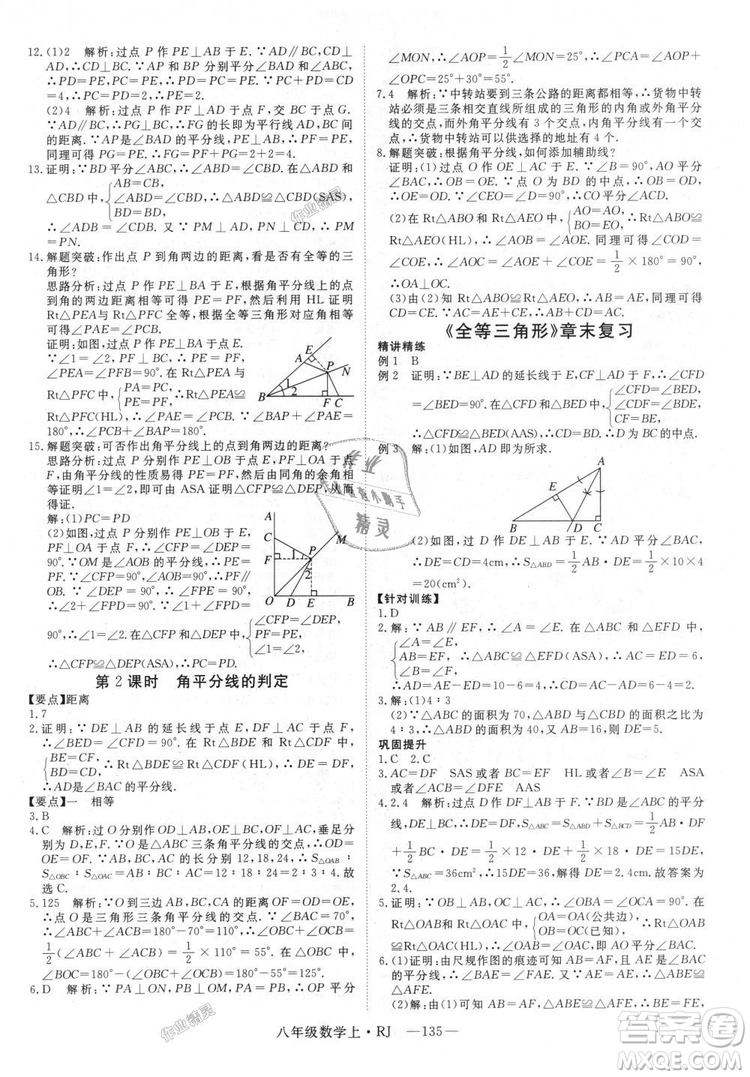 12. (1)2 解析:过点 P 作 PE⊥AB 于 E.∵AD∥BC,PD⊥CD
∴AD⊥PD,PC⊥BC.∵AP 和 BP 分别平分∠BAD 和∠ABC,
∴PD=PE,PC=PE.∴PC=PD.∵CD=4,∴PC=PD=2.
∴PE=2.
(2)4 解析:过点 P 作 PE⊥AB 于点 E,交 BC 于点 G.
∵AD∥BC,∴FG⊥BC.∴FG 的长即为平行线 AD 与 BC 间
的距离.同理可得 PG=PF=PE=2.∴FG=PF+PG=4.
13. 证明:∵BD 平分∠ABC,∴∠ABD=∠CBD.在△ABD 和
△CBD 中,{AB=CB, ∠ABD=∠CBD, BD=BD, ∴△ABD≌△CBD(SAS),
∴∠ADB=∠CDB.又∵PM⊥AD,PN⊥CD,
∴PM=PN.
14. 解题突破:作出点 P 到角两边的距离,看是否有全等的三
角形?
思路分析:过点 P 作 PE⊥BA 于 E,根据角平分线上的
点到角的两边距离相等可得 PE=PF,然后利用 HL 证明
Rt△PEA 与 Rt△PFC 全等,根据全等三角形对应角相等
即可得证.
证明:如图,过点 P 作 PE⊥BA 于 E.
∵∠1=∠2,PF⊥BC 于 F,∴PE=PF,
∠PEA=∠PFB=90°.在 Rt△PEA 与
Rt△PFC 中,{PA=PC, PE=PF, ∴Rt△PEA≌
Rt△PFC(HL).∴∠PAE=∠PCB.∵∠BAP+∠PAE=
180°,∴∠PCB+∠BAP=180°.
15. 解题突破:可否作出角平分线上的点到角两边的距离?
思路分析:过点 P 分别作 PE⊥OB 于 E,PF⊥OA 于 F,
由角平分线的性质易得 PE=PF,然后由同角的余角相
等证明∠1=∠2,即可由 ASA 证明△CFP≌△DEP,从而
得证.
解:(1)PC=PD
(2)如图,过点 P 分别作 PE⊥OB 于 E,
PF⊥OA 于点 F,∴∠CFP=∠DEP=
90°.∵OM 是∠AOB 的平分线,∴PE=
PF.∵∠1+∠FPD=90°,∠AOB=90°,
∴∠FPE=90°.∴∠2+∠FPD=90°.
∴∠1=∠2.在△CFP 和△DEP 中,{∠CFP=∠DEP, PF=PE, ∠1=∠2,
∴△CFP≌△DEP(ASA).∴PC=PD.
第 2 课时 角平分线的判定
【要点】距离
1. 7
2. 证明:∵DE⊥AB 的延长线于点 E,DF⊥AC 于点 F,
∴∠BED=∠CFD=90°.在 Rt△BDE 和 Rt△CDF 中,
{BE=CF, BD=CD, ∴Rt△BDE≌Rt△CDF(HL),∴DE=DF.
∴AD 是∠BAC 的平分线.
【要点】一 相等
3. B
4. C 解析:过点 O 分别作 OD⊥AB,OE⊥BC,OF⊥AC,垂足分别
为 D,E,F.∵O 是△ABC 三条角平分线的交点,∴OD=
OE=OF.∵AB,BC,AC 的长分别 12,18,24,∴S△OAB:
S△OBC:S△OAC=AB:BC:AC=12:18:24=2:3:4.
故选 C.
5. 125 解析:∵点 O 到三边的距离 OF=OD=OE,
∴点 O 是三角形三条角平分线的交点.∵∠BAC=70°,
∴∠ABC+∠ACB=180°-70°=110°.∴∠OBC+∠OCB=
1/2(∠ABC+∠ACB)=1/2×110°=55°.在△OBC 中,
∠BOC=180°-(∠OBC+∠OCB)=180°-55°=125°.
6. D 解析:∵PA⊥ON,PB⊥OM,PA=PB,∴OP 平分
∠MON,∴∠AOP=1/2∠MON=25°.∴∠PCA=∠AOP+
∠OPC=25°+30°=55°.
7. 4 解析:∵中转站要到三条公路的距离都相等,∴货物中转
站必须是三条相交直线所组成的三角形的内角或外角平分
线的交点,而外角平分线有 3 个交点,内角平分线有一个交
点,∴货物中转站可以供选择的地址有 4 个.
8. 解题突破:根据角平分线,如何添加辅助线?
证明:(1)过点 O 作 OE⊥AC 于 E.∵∠ABD=90°,OA 平分
∠BAC,∴OB=OE.∵点 O 为 BD 的中点,∴OB=OD.∴
OE=OD.∴OC 平分∠ACD.
(2)在 Rt△ABO 和 Rt△AEO 中,{AO=AO, BO=EO, ∴Rt△ABO≌
Rt△AEO(HL),∴∠AOB=∠AOE.同理可得∠COD=
∠COE.∴∠AOC=∠AOE+∠COE=1/2×180°=90°.
∴OA⊥OC.
(3)由(2)知 Rt△ABO≌Rt△AEO,∴AB=AE.同理可得
CD=CE.∵AC=AE+CE,∴AB+CD=AC.
《全等三角形》章末复习
精讲精练
例 1 B
例 2 证明:∵BE⊥AD 的延长线于 E,CF⊥AD 于 F,
∴∠CFD=∠BED=90°.在△BED 和△CFD 中,
{∠BED=∠CFD, ∠BDE=∠CDF, CF=BE, ∴△CFD≌△BED(AAS).∴BD=CD.
∴AD 是△ABC 的中线.
例 3 解:(1)如图,AD 即为所求.
(2)如图,过 D 作 DE⊥AB 于 E.∵AD 平分∠BAC,
∴DE=DC=4cm,∴S△ABD=1/2AB·DE=1/2×10×4
=20(cm²).
【针对训练】
1. D
2. 解:∵AB∥EF,∴∠A=∠E.在△ABC 和△EFD 中,
{AB=EF, ∠A=∠E, AC=ED, ∴△ABC≌△EFD(SAS).∴AC=ED=6.∴
AD=AE-ED=10-6=4.∴CD=AC-AD=6-4=2.
3. 解:(1)4∶3
(2)∵△ABC 的面积为 70,△ABD 与△ACD 的面积比为
4∶3,∴△ABD 的面积为 40.又 AB=16,∴DE=5.
巩固提升
1. C 2. C
3. AC=DF SAS 或者 BC=EF HL 或者∠A=∠D ASA
或者∠ACB=∠DFE AAS
4. 2.4 解析:过点 D 作 DF⊥BC 于 F.∵BD 是∠ABC 的平分
线,DE⊥AB,∴DE=DF.∵S△ABC=S△ABD+S△BCD=1/2AB·
DE+1/2BC·DF=1/2×12·DE+1/2×18·DE=15DE,
∵△ABC=36cm²,∴15DE=36.∴DE=2.4cm.故答案为
2.4.
5. 证明:∵OB⊥AB,OC⊥AC,∴∠B=∠C=90°.在
Rt△ABO 和 Rt△ACO 中,{OA=OA(公共边), OB=OC(已知), ∴Rt△ABO≌
Rt△ACO(HL).∴∠AOB=∠AOC.
6. (1)证明:由尺规作图的痕迹可知,∠BAC 的平分线为 AF,
∴∠BAE=∠EAC.∵AE=AE,AB=AF,∴△ABE≌
△AFE.
(2)解:由(1)可知△ABE≌△AFE,∴∠ABE=∠AFE.
八年级数学上·RJ —135—
作业精灵